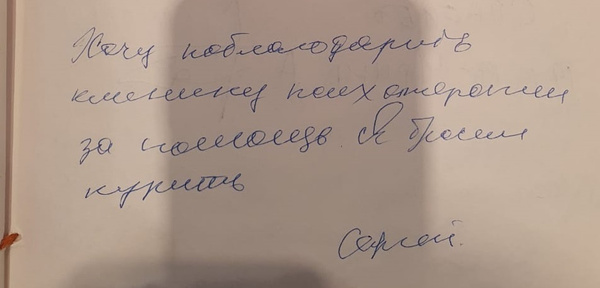 Хочу поблагодарить
клинику психотерапии
за помощь. Я бросил
курить
Сергей.